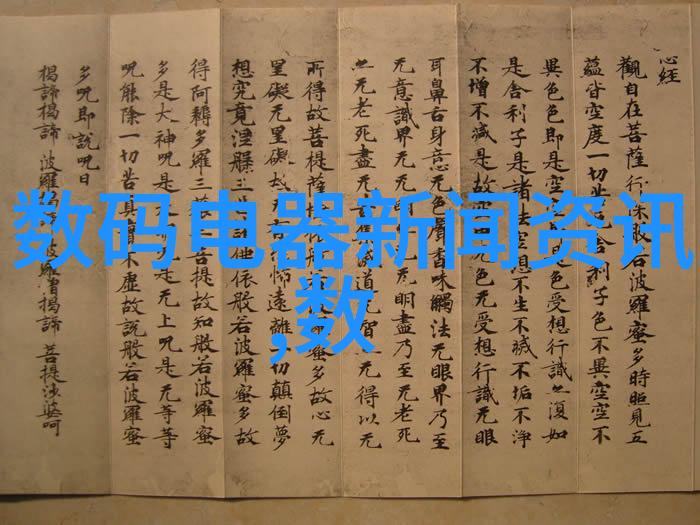 心経
觀自在菩薩行深般若波羅蜜多時照見五
蘊皆空度一切苦舍利子色不異空空不
異色色即是空空是色受想行識亦復如
是舍利子是諸法空想不生不滅不垢不淨
不增不減是故空无色无受想行識无眼
耳鼻舌身意无色聲香味觸法无眼界乃至
无意識界无无明无明盡乃至无老死
亦无老死盡无苦集滅道无智无得以无
所得故菩提薩依般波羅蜜多故心无
罣礙无罣礙故无有怖遠離切顛倒夢
想究竟涅槃三世諸佛依般若波羅蜜多故
得阿耨多羅三藐三菩提故知般若波羅蜜
多是大神呪是呪是无上呪是无等等
呪能除一切苦真實不虛故說般若波羅蜜
多呪即說呪曰
揭諦揭諦 波羅揭諦 波羅僧揭諦 菩提莎婆呵
数码电器新闻资讯
,数